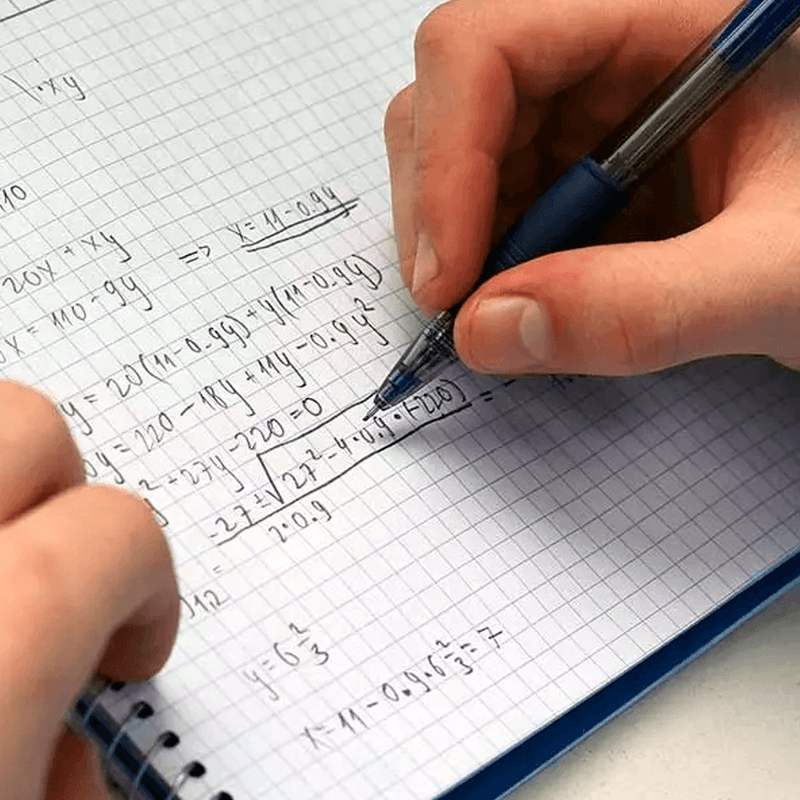 \.xy
110
20x + xy
x = 110 - 9y => x = 11 - 0.9y
y = 20(11 - 0.9y) + y(11 - 0.9y)
y = 220 - 18y + 11y - 0.9y²
² + 27y - 220 = 0
-27 ± √27² - 4 • 0.9 • (-220) =
2 • 0.9
1,2 =
y = 6 2/3
x = 11 - 0.9 • 6 2/3 = 7